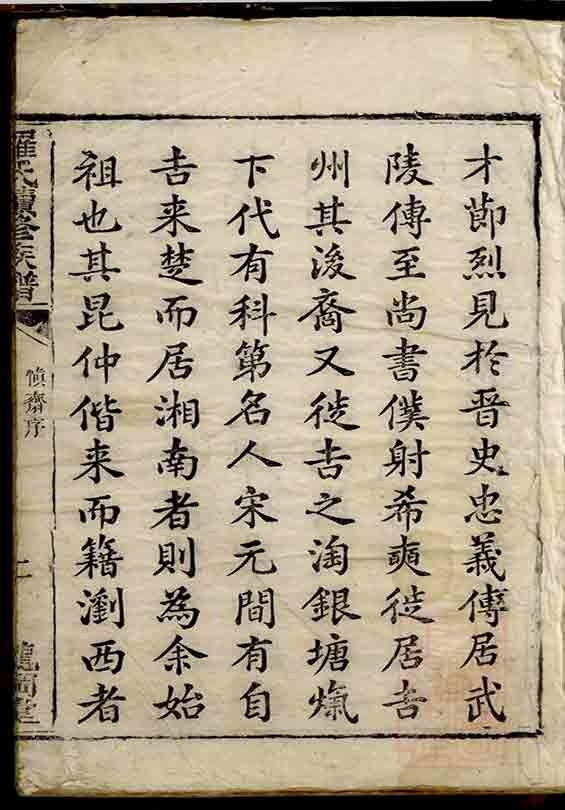 才節烈見於晋史忠義傳居武
陵傳至尚書僕射希奭徙居吉
州其後裔又徙吉之淘銀塘㷔
下代有科第名人宋元間有自
吉来楚而居湘南者則為余始
祖也其昆仲偕来而籍瀏西者
羅氏續修族譜
慎齋序
二